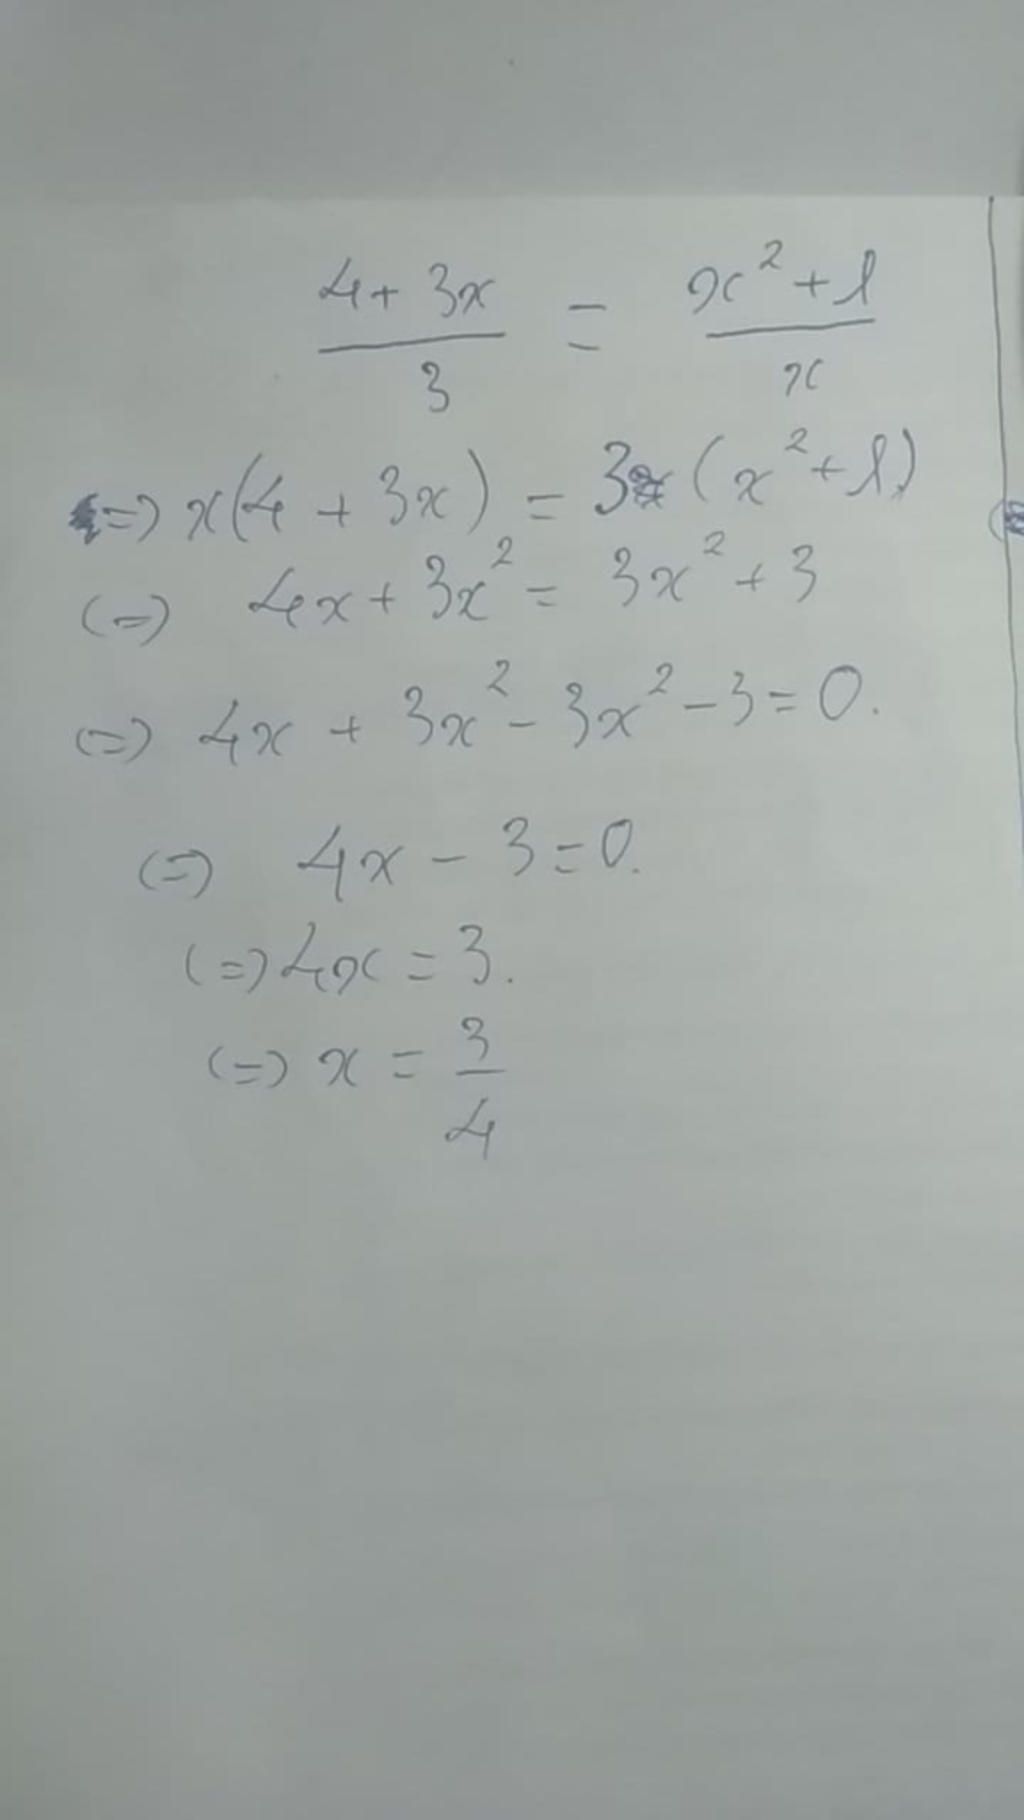 4 + 3x / 3 = x² + 1 / x
=> x(4 + 3x) = 3 (x² + 1)
(=) 4x + 3x² = 3x² + 3
(=) 4x + 3x² - 3x² - 3 = 0.
(=) 4x - 3 = 0.
(=) 4x = 3.
(=) x = 3 / 4